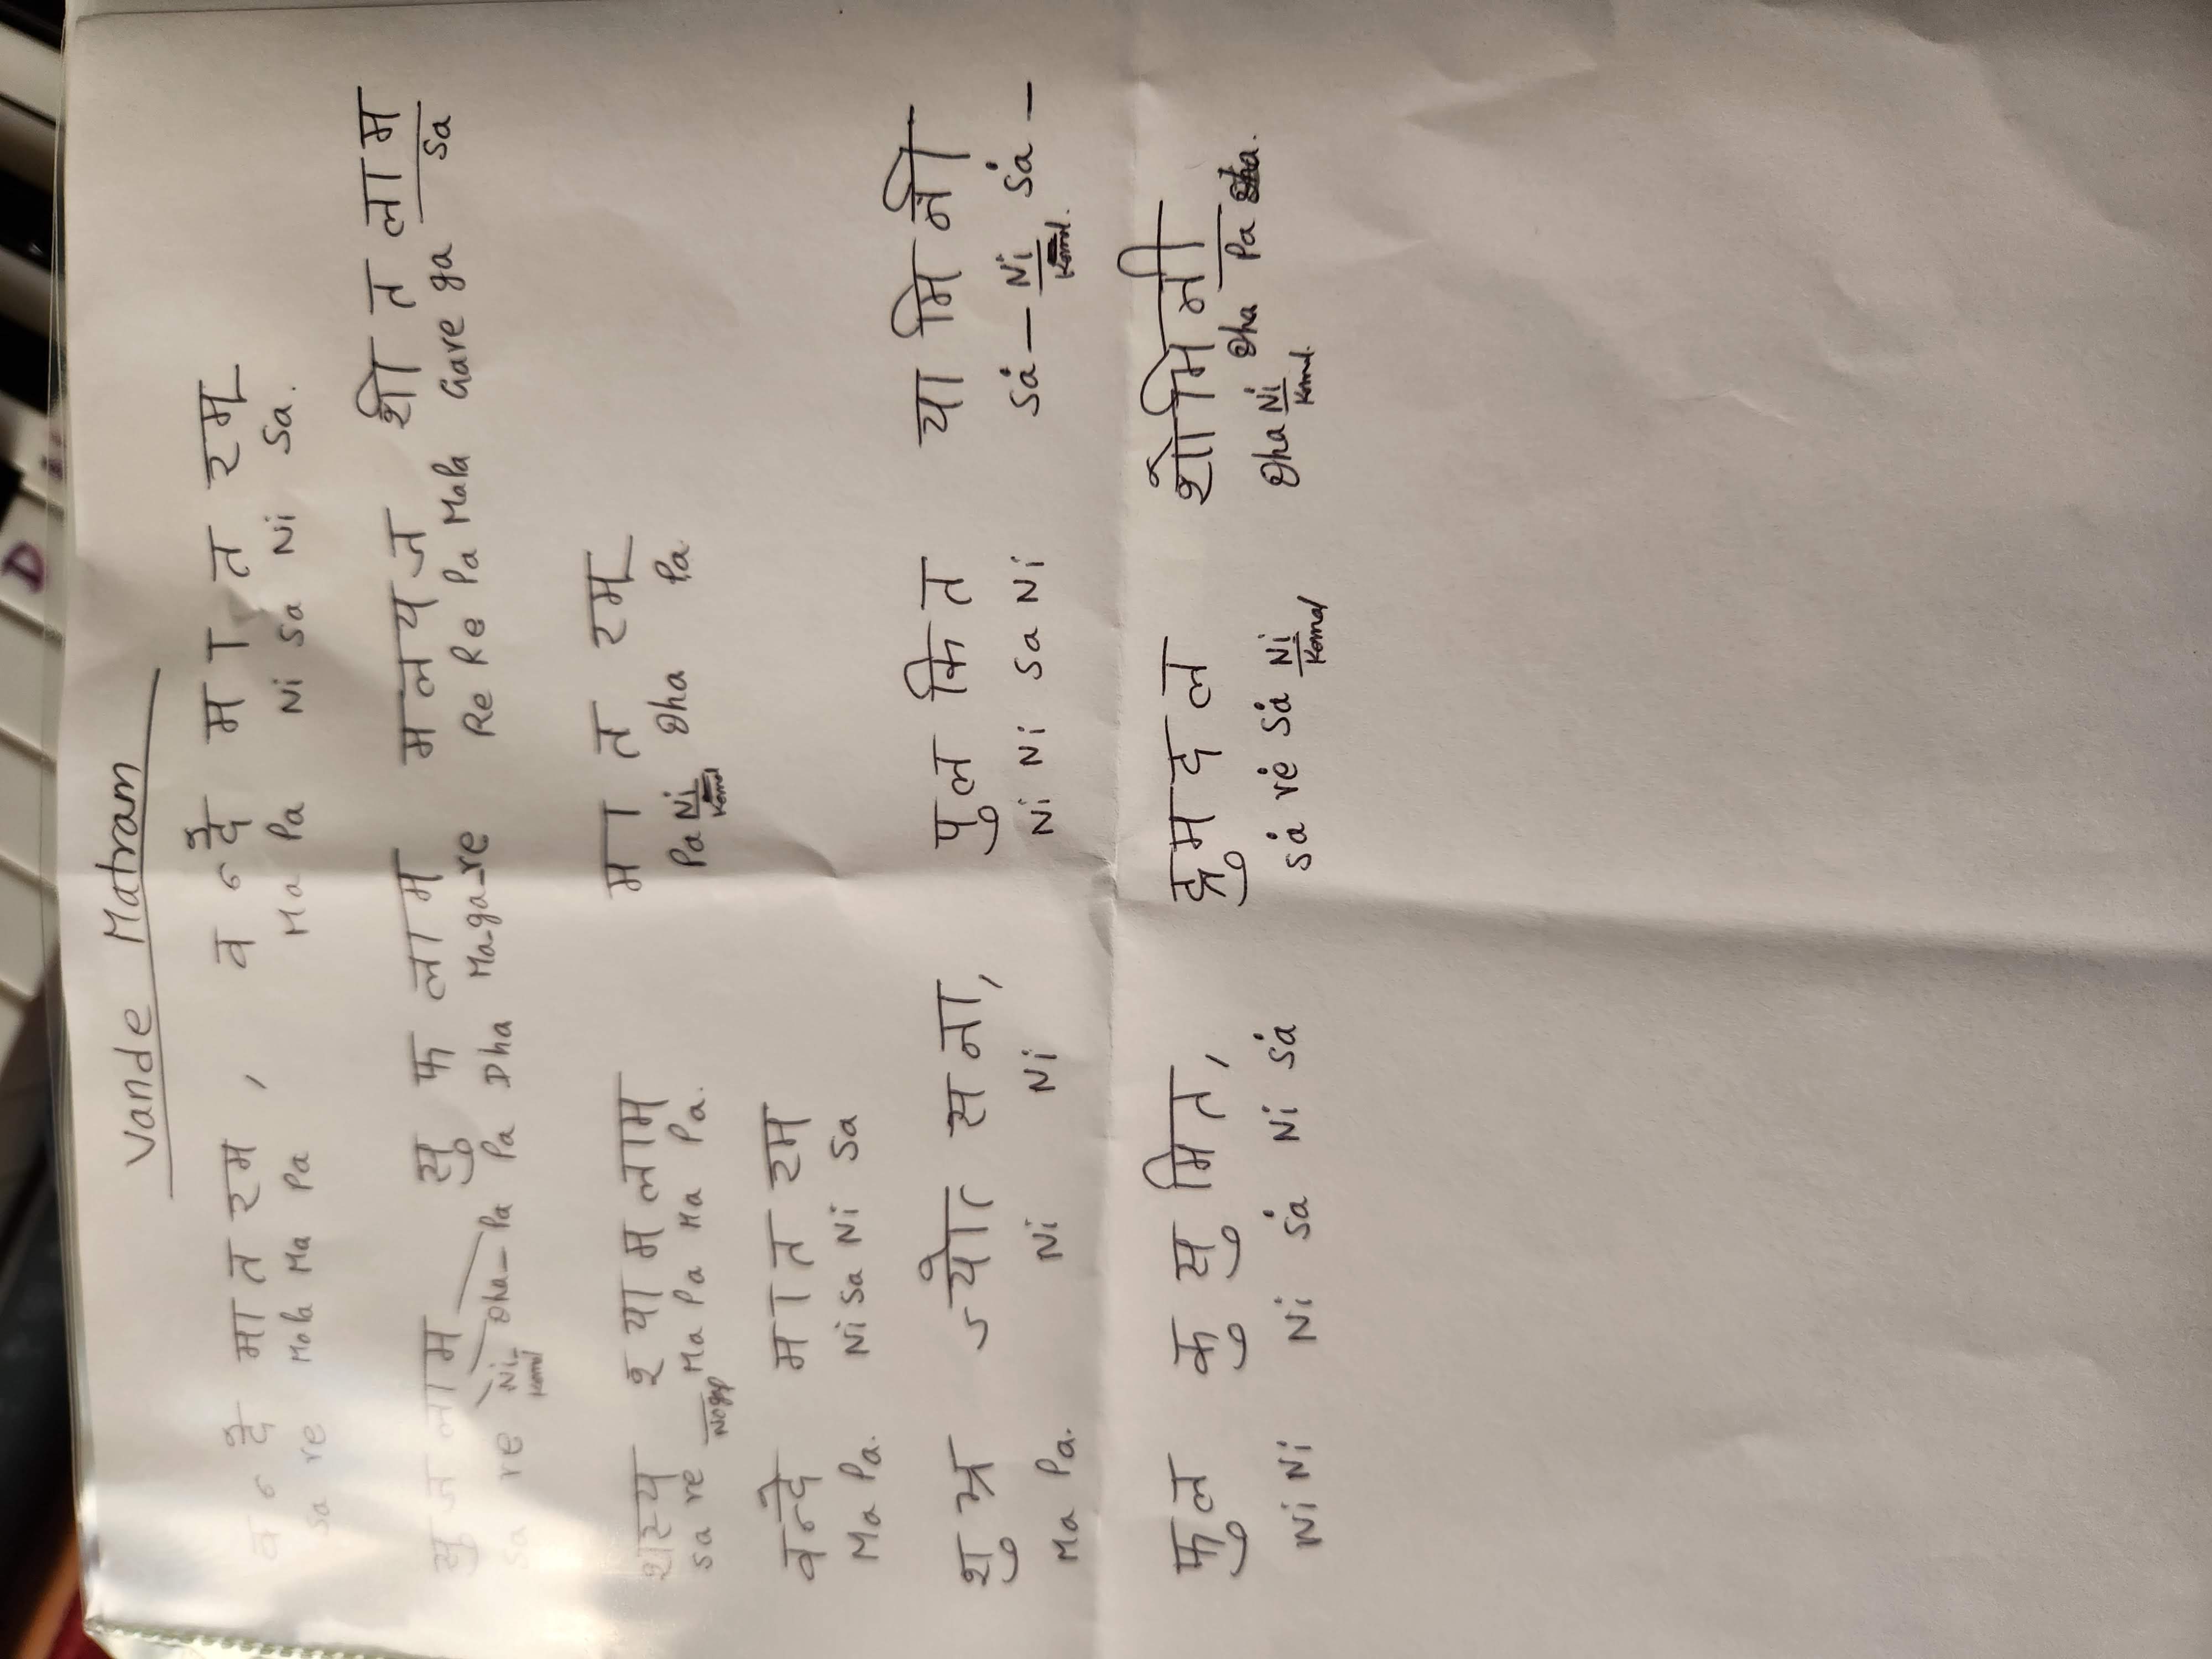 D
Vande Matram
वन्दे मातरम, वन्दे मातरम्
Sa re MaPa Ma Pa Ma Pa Ni Sa Ni Sa.
सुजलाम सुफलाम मलयज शीतलाम
Sa re Ni- Dha- Pa Pa Dha Ma-ga-re Re Re Pa MaPa Gare ga Sa
Komal
शस्य श्यामलाम मातरम्
Sa re Ma Pa Ma Pa. Pa Ni Dha Pa
No gap Komal
वन्दे मातरम
Ma Pa. Ni Sa Ni Sa
शुभ्र ज्योत सना, पुलकित यामिनी
Ma Pa. Ni Ni Ni Ni Sa Ni Sȧ — Ni Sȧ —
Komal.
फुल कुसुमित, द्रुमदल शोमिनी
Ni Ni Ni Sȧ Ni Sȧ Sȧ rė Sȧ Ni Dha Ni Dha Pa
Komal Komal.